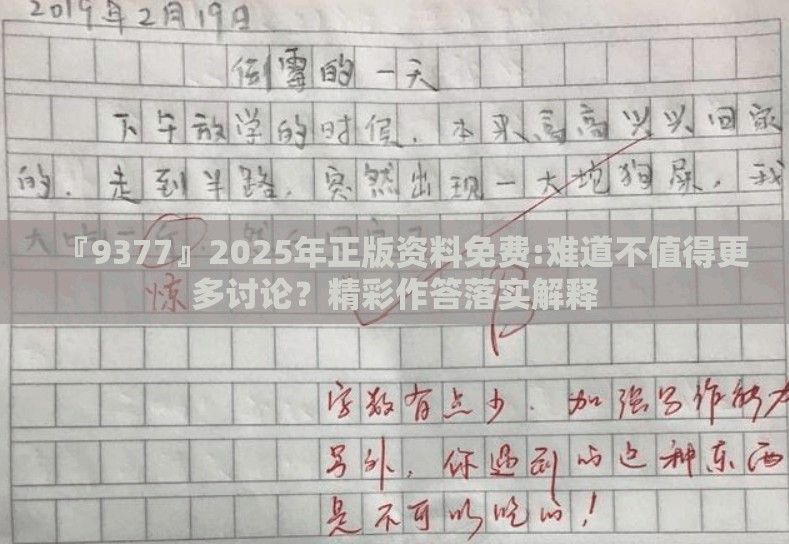 2019年2月19日
倒霉的一天
下午放学的时候,本来高高兴兴回家
的,走到半路,突然出现一大坨狗屎,我
大吃一斤
『9377』2025年正版资料免费:难道不值得更
惊
多讨论?精彩作答落实解释
B
字数有点少.加强写作能力
另外,你遇到的这种东西
是不可以吃的!